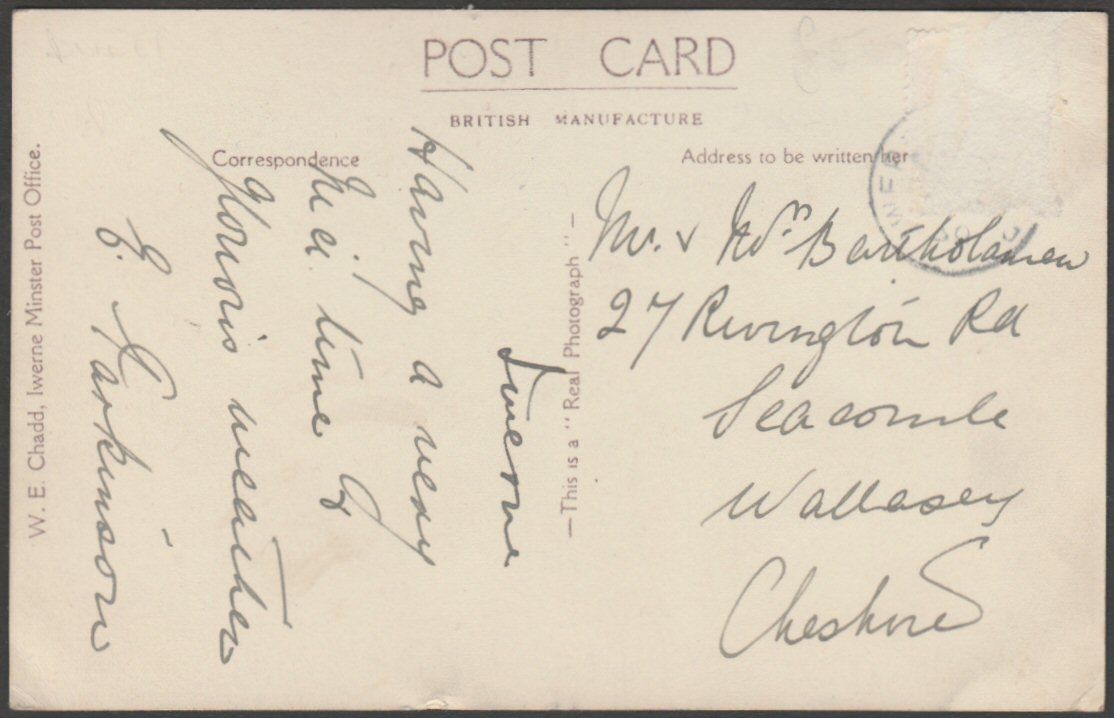 POST CARD
BRITISH MANUFACTURE
Correspondence
Address to be written her
W. E. Chadd, Iwerne Minster Post Office.
—This is a "Real Photograph"—
Iwerne
Having a very
nice time &
glorious weather
E. Parkinson
Mr. & Mrs Bartholomew
27 Rivington Rd
Seacombe
Wallasey
Cheshire